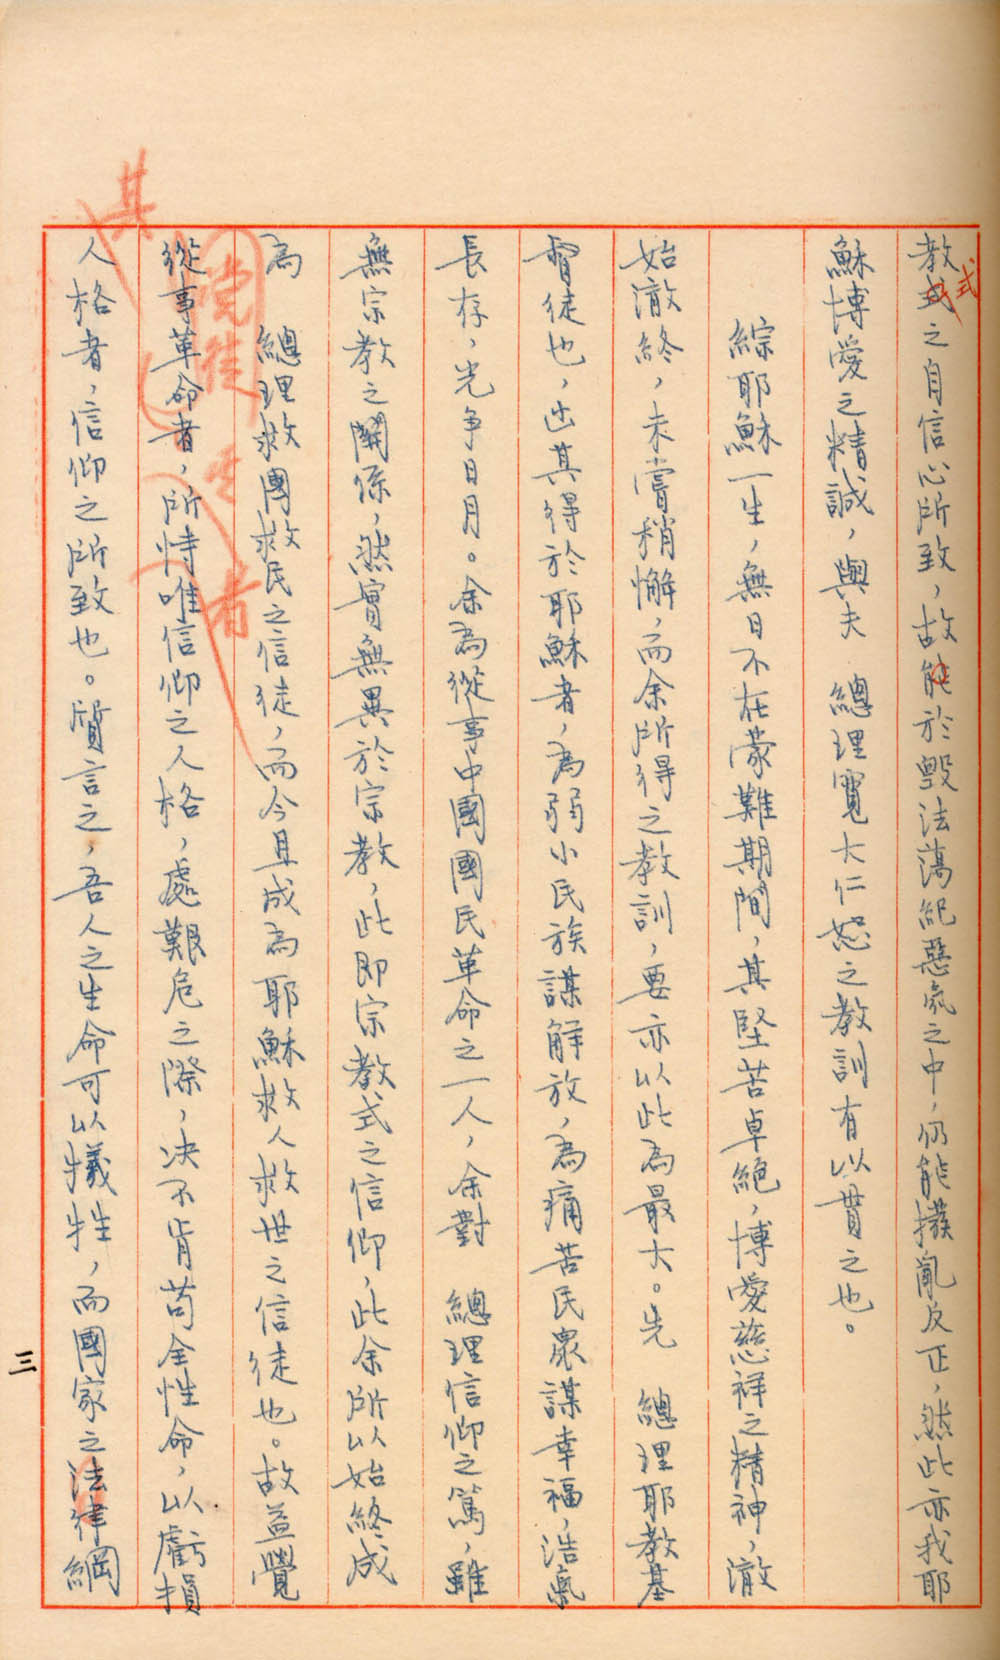 教式之自信心所致，故能於毀法蕩紀惡氛之中，仍能撥亂反正，然此亦我耶
式
穌博愛之精誠，與夫　總理寬大仁恕之教訓有以貫之也。
綜耶穌一生，無日不在蒙難期間，其堅苦卓絕，博愛慈祥之精神，澈
始澈終，未嘗稍懈，而余所得之教訓，要亦以此為最大。先　總理耶教基
督徒也，迄其得於耶穌者，為弱小民族謀解放，為痛苦民眾謀幸福，浩氣
長存，光爭日月。余為從事中國國民革命之一人，余對　總理信仰之篤，雖
無宗教之關係，然實無異於宗教，此即宗教式之信仰，此余所以始終成
為　總理救國救民之信徒，而今且成為耶穌救人救世之信徒也。故益覺
從事革命者，所恃唯信仰之人格，處艱危之際，決不肯苟全性命，以虧損
人格者，信仰之所致也。質言之，吾人之生命可以犧牲，而國家之法律綱
其
者
三